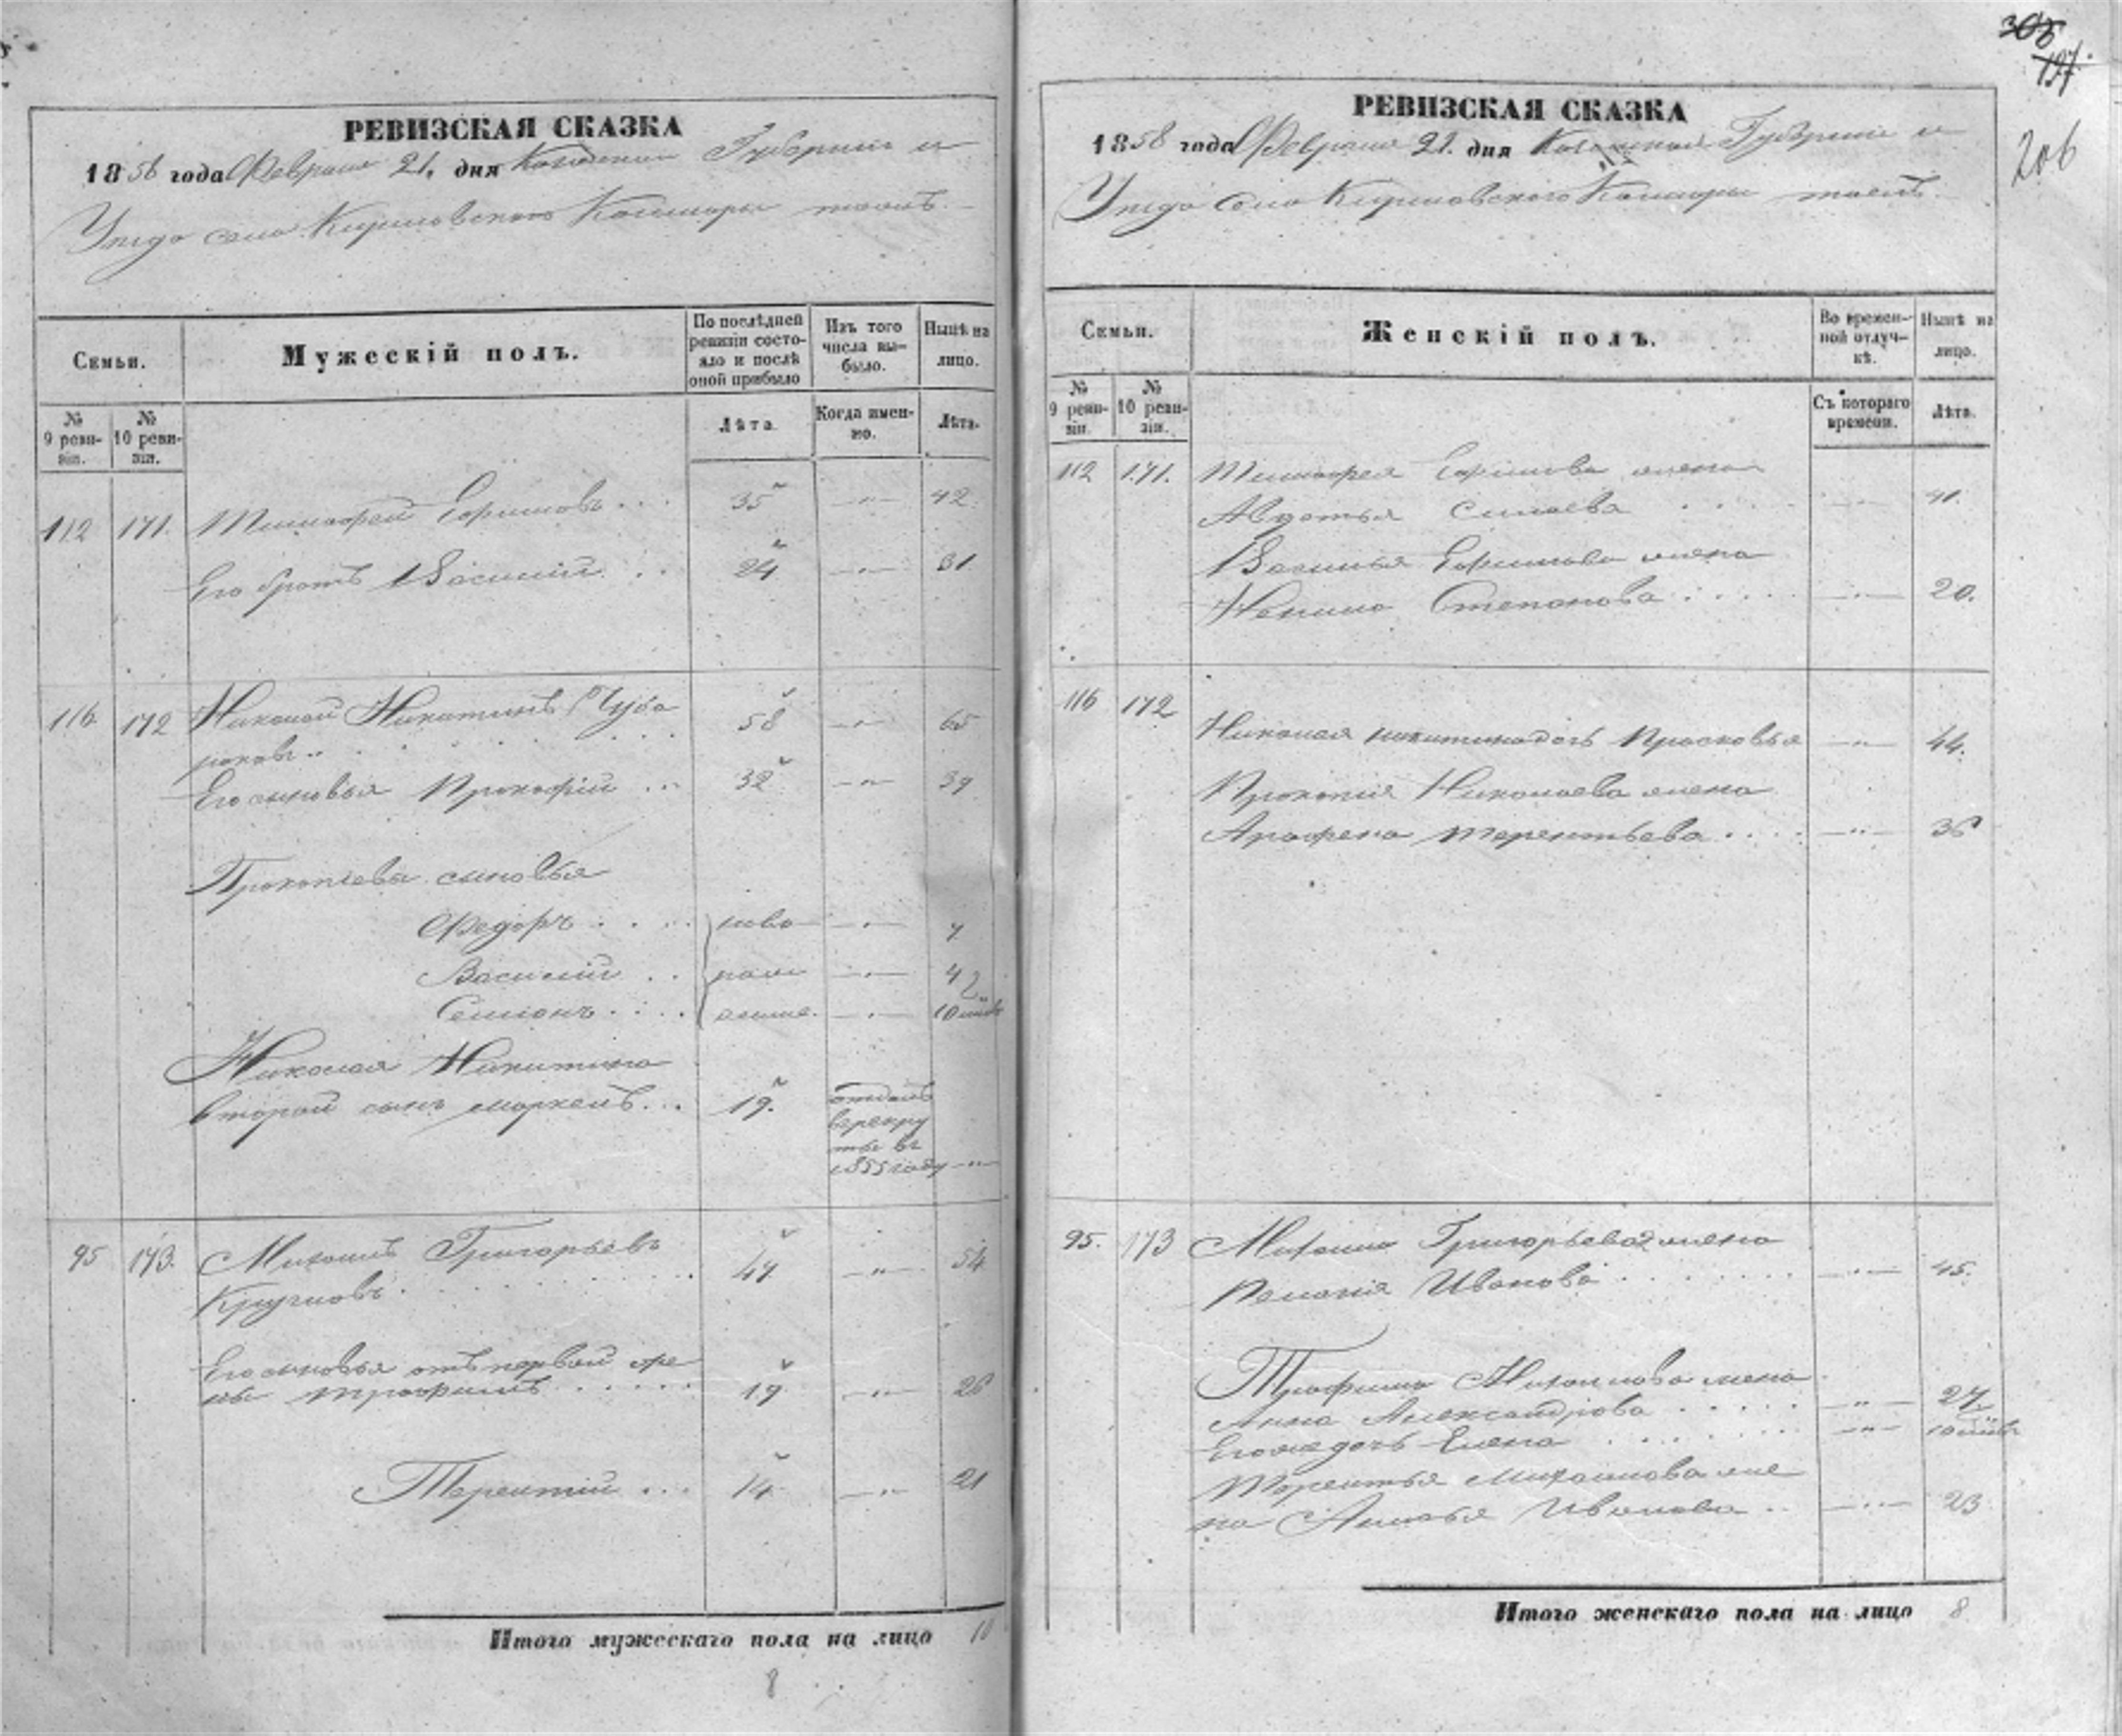 РЕВИЗСКАЯ СКАЗКА
1858 года Февраля 21. дня Казанской Губерніи и
Уезда села
Семьи.
Мужескій полъ.
По послѣдней ревизіи состояло и послѣ оной прибыло
Изъ того числа выбыло.
Нынѣ на лицо.
№ 9 ревизіи.
№ 10 ревизіи.
Лѣта.
Когда именно.
Лѣта.
112 171. Тимофей Ефимовъ 35 42.
Его братъ Василий 24 31
116 172 Николай Никитинъ Чуба 58 65
ровъ
Его сыновья Прокофій 32 39
Прокопіевы сыновья
Федоръ ново 7
Василій рож 4
Семіонъ 10
Николая Никитина
второй сынъ Маркелъ 19.
отданъ
в рекру
ты въ
1855 году
95 173. Михаилъ Григорьевъ 47 54
Кругловъ
Его сыновья отъ первой же
ны Трофимъ 19 26
Терентій 14 21
Итого мужескаго пола на лицо 10
8
305
197
206
РЕВИЗСКАЯ СКАЗКА
1858 года Февраля 21. дня Казанской Губерніи и
Уезда села
Семьи.
Женскій полъ.
Во временной отлучкѣ.
Нынѣ на лицо.
№ 9 ревизіи.
№ 10 ревизіи.
Съ котораго времени.
Лѣта.
112 171. Тимофея Ефимова жена
Авдотья 41.
Василья Ефимова жена
Степанова 20.
116 172
Николая Никитина дочь Прасковья 44.
Прокопія Николаева жена
Аграфена Терентьева 36
95. 173 Михаила Григорьева 2 жена
Пелагія Иванова 45.
Трофима Михайлова жена
Анна Александрова 27
Его же дочь Елена 10
Терентья Михайлова же
на Иванова 23
Итого женскаго пола на лицо 8